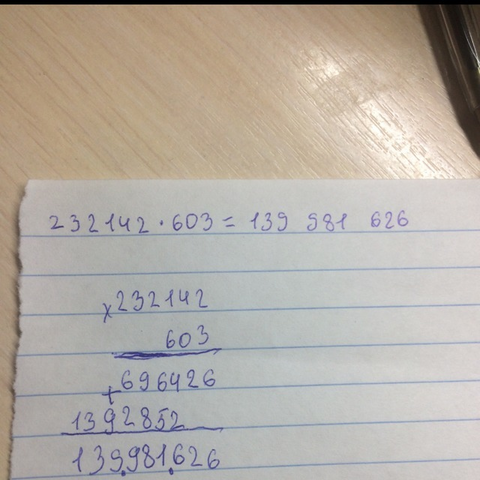 232142 · 603 = 139 981 626
×232142
603
+696426
1392852
139.981.626